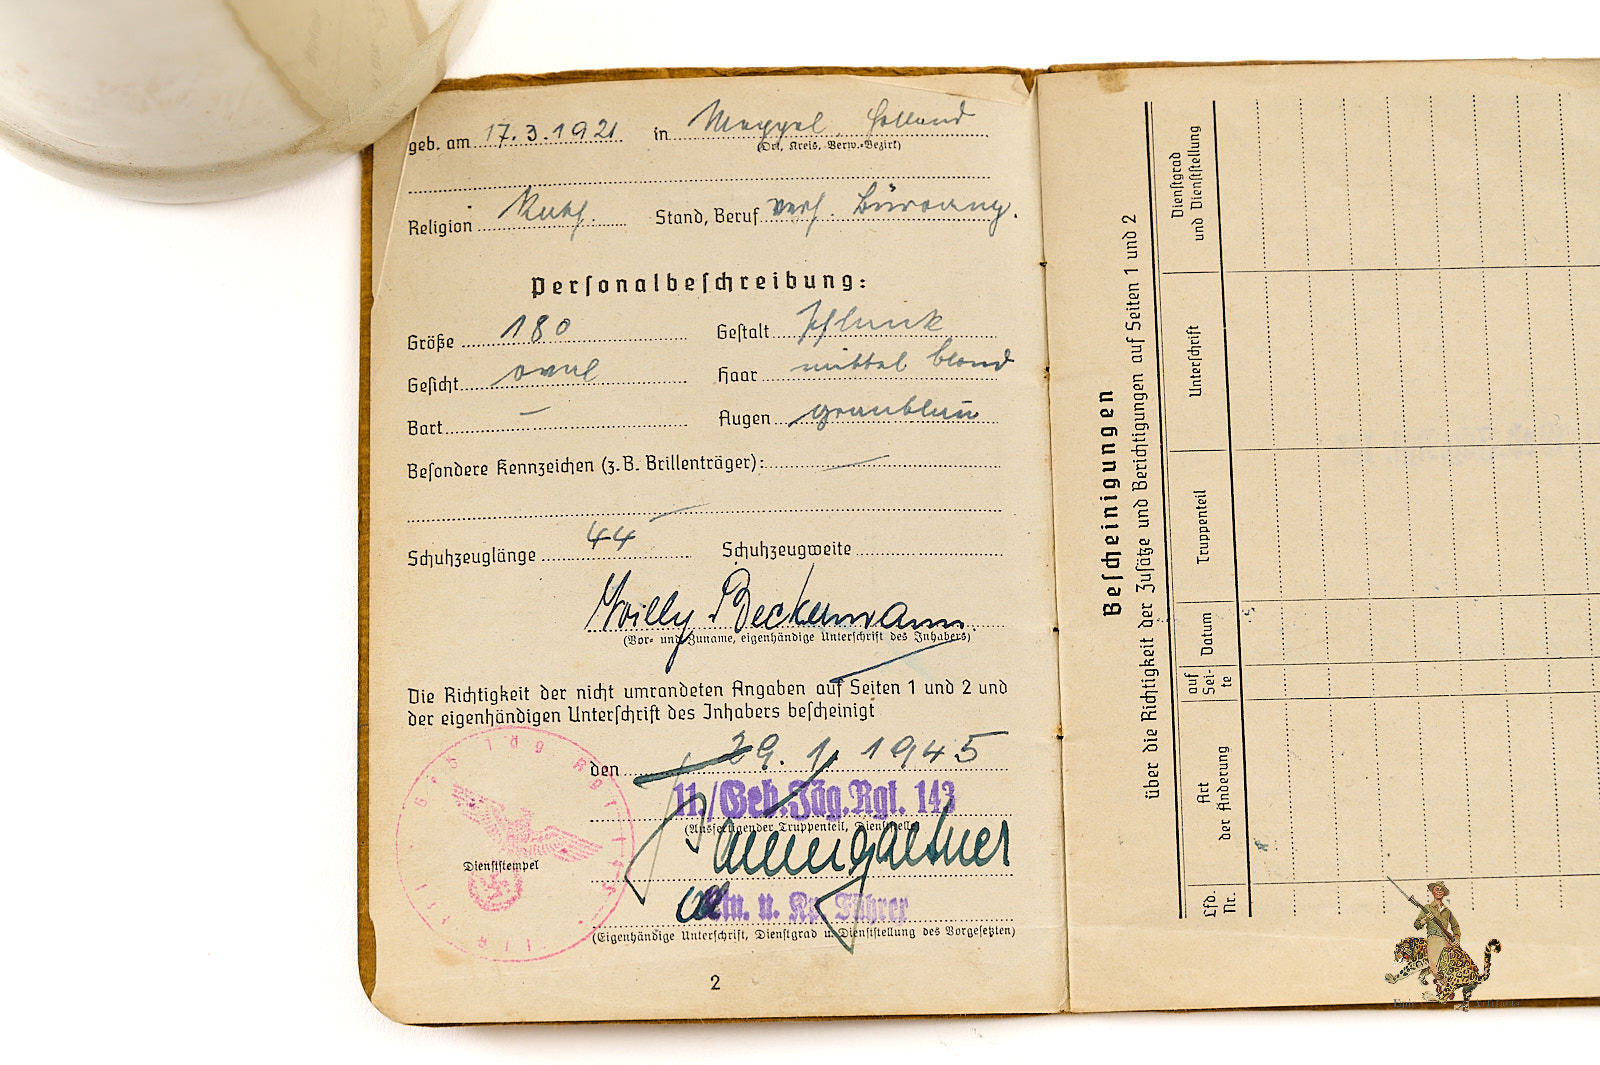 geb. am 17.3.1921 in Meppel, Holland
(Ort, Kreis, Verw.-Bezirk)
Religion Kath. Stand, Beruf
Personalbeschreibung:
Größe 180 Gestalt schlank
Gesicht oval Haar mittel blond
Bart — Augen graublau
Besondere Kennzeichen (z.B. Brillenträger): —
Schuhzeuglänge 44 Schuhzeugweite
Willy Beckermann
(Vor- und Zuname, eigenhändige Unterschrift des Inhabers)
Die Richtigkeit der nicht umrandeten Angaben auf Seiten 1 und 2 und
der eigenhändigen Unterschrift des Inhabers bescheinigt
den 29. 1. 1945
11./Geb.Jäg.Rgt. 143
(Ausfertigender Truppenteil, Dienststelle)
Baumgartner
Dienststempel
Ltn. u. Kp. Führer
(Eigenhändige Unterschrift, Dienstgrad u. Dienststellung des Vorgesetzten)
2
Bescheinigungen
über die Richtigkeit der Zusätze und Berichtigungen auf Seiten 1 und 2
Lfd. Nr.
Art der Änderung
auf Sei- te
Datum
Truppenteil
Unterschrift
Dienstgrad und Dienststellung